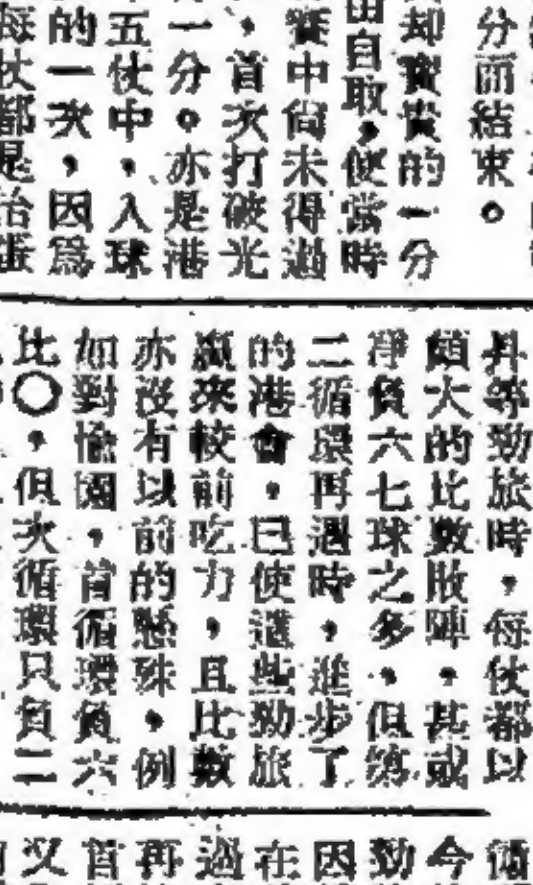 分而結束。
却寶貴的一分
由自取，使當時
賽中尚未得過
，首次打破光
一分。亦是港
五仗中，入球
的一次，因爲
每仗都是治蛋
丹等勁旅時，每仗都以
頗大的比數敗陣，甚或
淨負六七球之多，但第
二循環再遇時，進步了
的港會，已使這些勁旅
贏來較前吃力，且比數
亦沒有以前的懸殊，例
如對愉園，首循環負六
比〇，但次循環只負二
循
今
勁
因
在
過
再
首
又